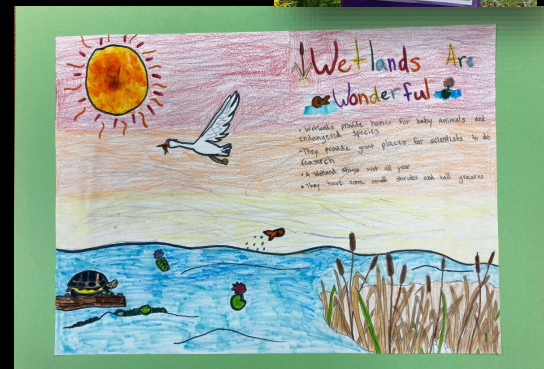 Wetlands Are
Wonderful
• Wetlands provide homes for baby animals and
endangered species
• They provide great places for scientists to do
research
• A wetland stays wet all year
• They have some small shrubs and tall grasses